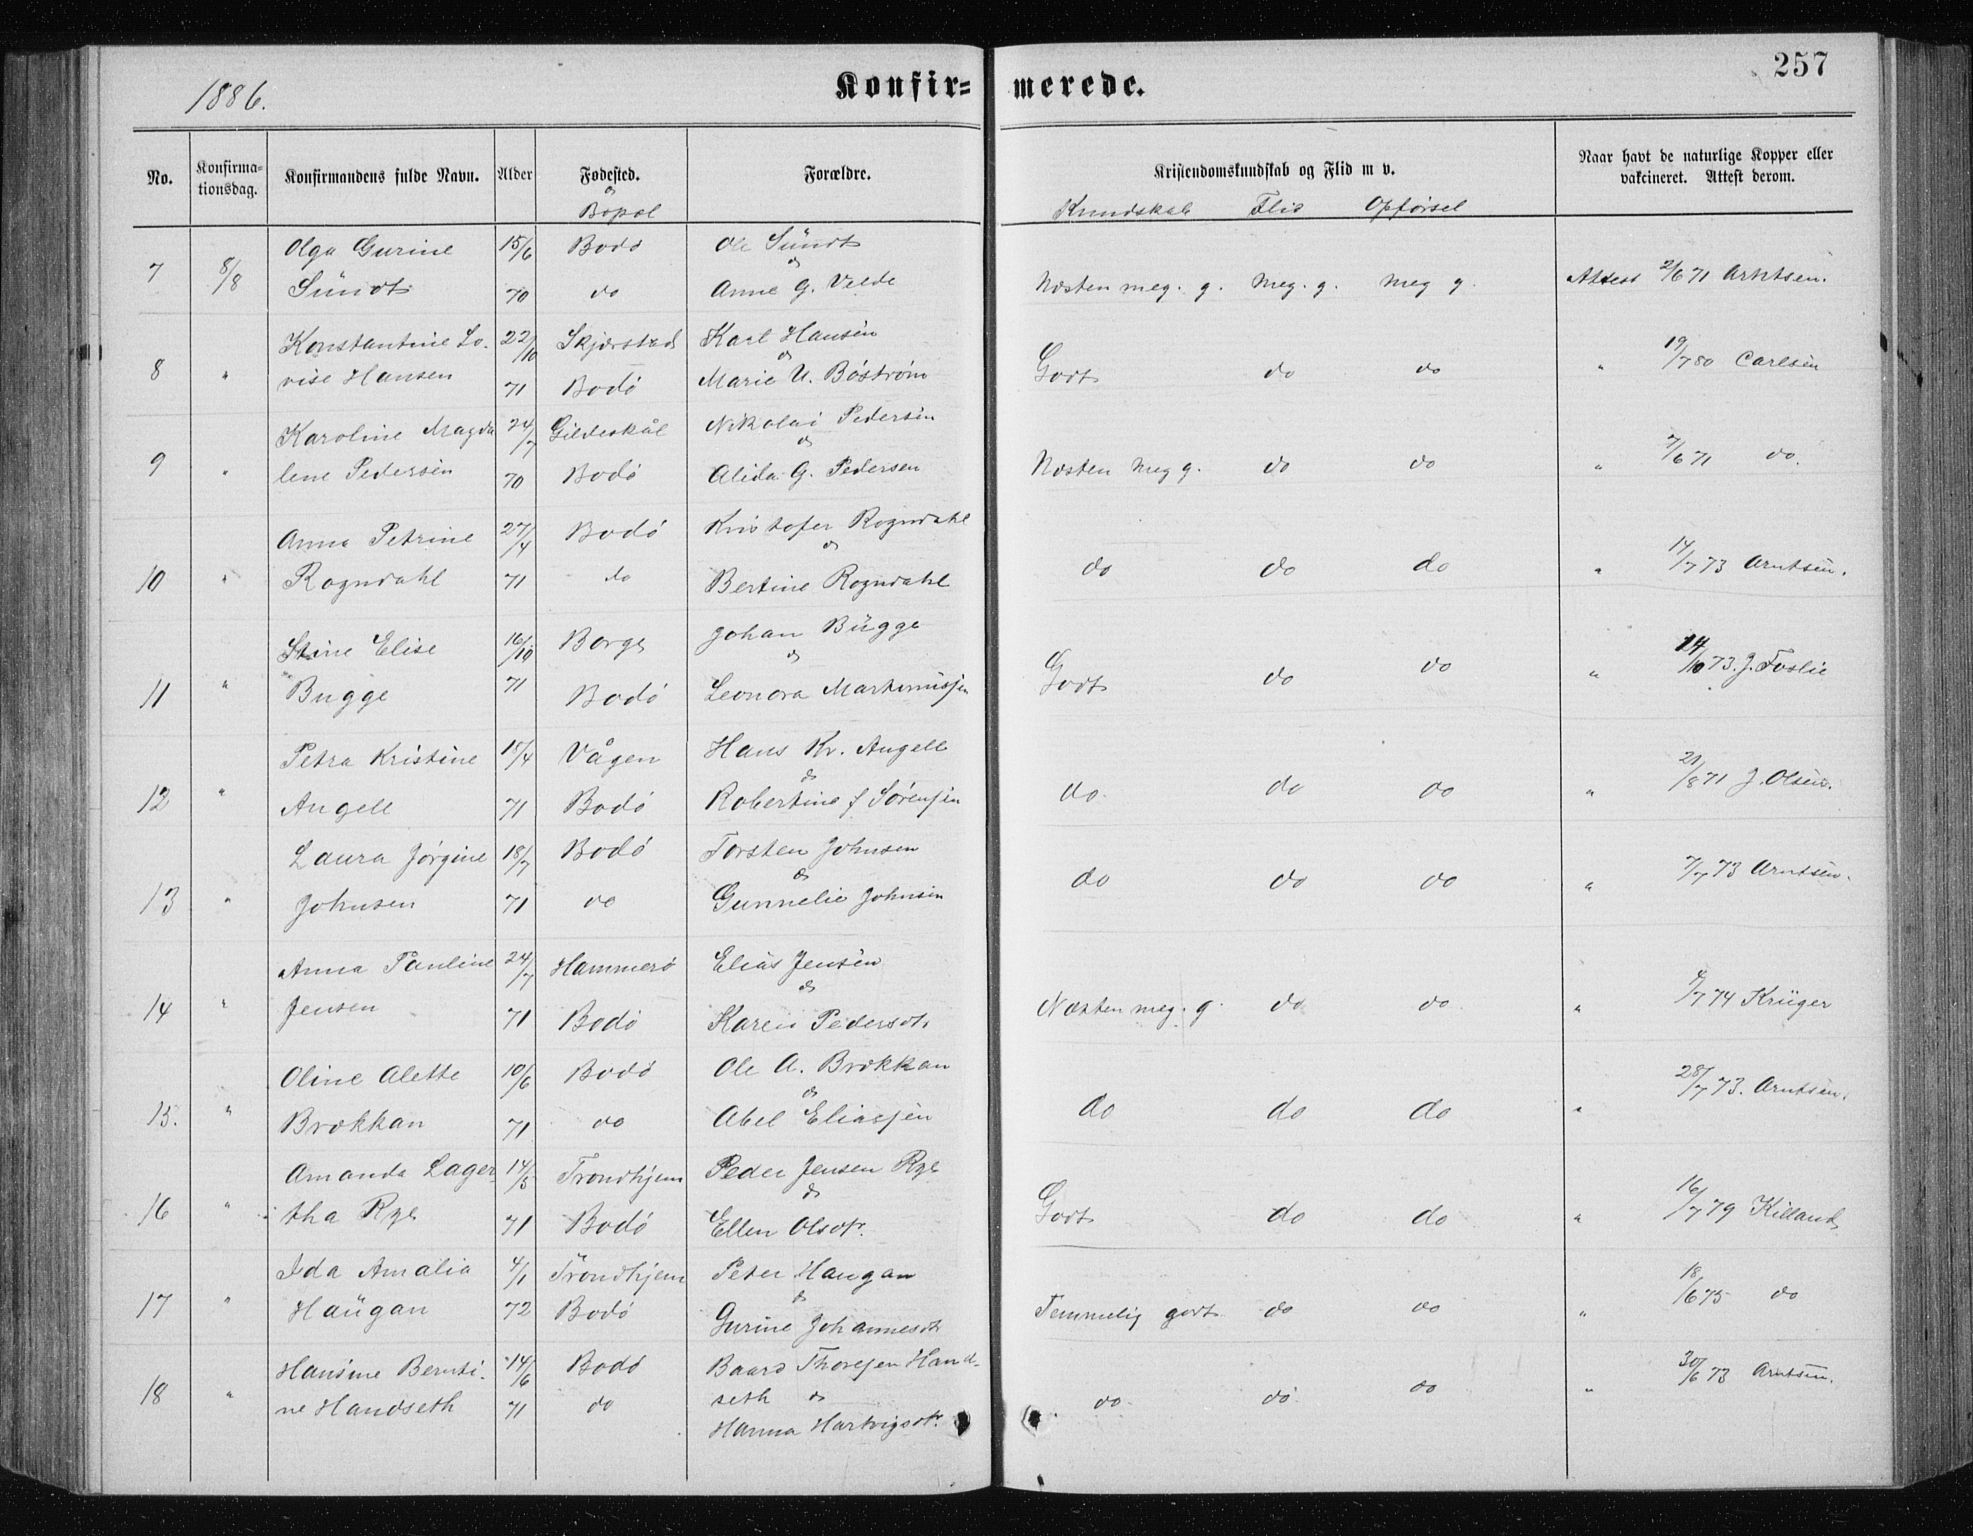 1886.
Konfir-
merede.
257
No.
Konfirma-
tionsdag.
Konfirmandens fulde Navn.
Alder
Fødested.
&
Bopæl
Forældre.
Kristendomskundskab og Flid m v.
Kundskab Flid Opførsel
Naar havt de naturlige Kopper eller
vakcineret. Attest derom.
Olga Gurine 15/6 Bodø Ole Sündt
7 8/8 & Næsten meg. g. meg. g. meg g. Attest 2/6 71 Arntsen.
Sündt 70 do Anne G. Velde
Konstantine Lo- 22/10 Skjerstad Karl Hansen
8 " & Godt do do " 19/7 80 Carlsen
vise Hansen 71 Bodø Marie U. Boström
Karoline Magda 24/7 Gildeskål Nikolai Pedersen
9 " & Næsten meg g. do do " 7/6 71 do.
lene Pedersen 70 Bodø Alida G. Pedersen
Anna Petrine 27/4 Bodø Kristofer Rogndahl
10 " & do do do " 14/7 73 Arntsen.
Rogndahl 71 do Bertine Rogndahl
Stine Elise 16/10 Borge Johan Bügge
11 " & Godt do do " 73. J. Foslie
Bugge 71 Bodø Leonora Martinussen
Petra Kristine 18/4 Vågen Hans Kr. Angell
12 " & do do do " 21/8 71 J. Olsen.
Angell 71 Bodø Robertine f Sørensen
Laura Jørgine 18/7 Bodø Torsten Johnsen
13 " & do do do " 7/7 73 Arntsen.
Johnsen 71 do Gunnelie Johnsen
Anna Pauline 24/7 Hammerø Elias Jensen
14 " & Næsten meg. g. do do " 74 Krüger
Jensen 71 Bodø Karen Pedersdt.
Oline Alette 10/6 Bodø Ole A. Brækkan
15. " & do do do " 28/7 73. Arntsen.
Brækkan 71 do Abel Eliassen
Amanda Lager- 14/5 Trondhjem Peder Jensen Rye
16 " & Godt do do " 16/7 79 Killand
tha Rye 71 Bodø Ellen Olsdt.
Ida Amalia 4/1 Trondhjem Peter Haugan
17 " & Temmelig godt do do " 18/6 75 do
Haügan 72 Bodø Gurine Johannesdt
Hansine Bernti- 14/6 Bodø Baard Thoresen Hand-
18 " seth & do do do " 30/6 73 Arntsen.
ne Handseth 71 do Hanna Hartvigsdt.